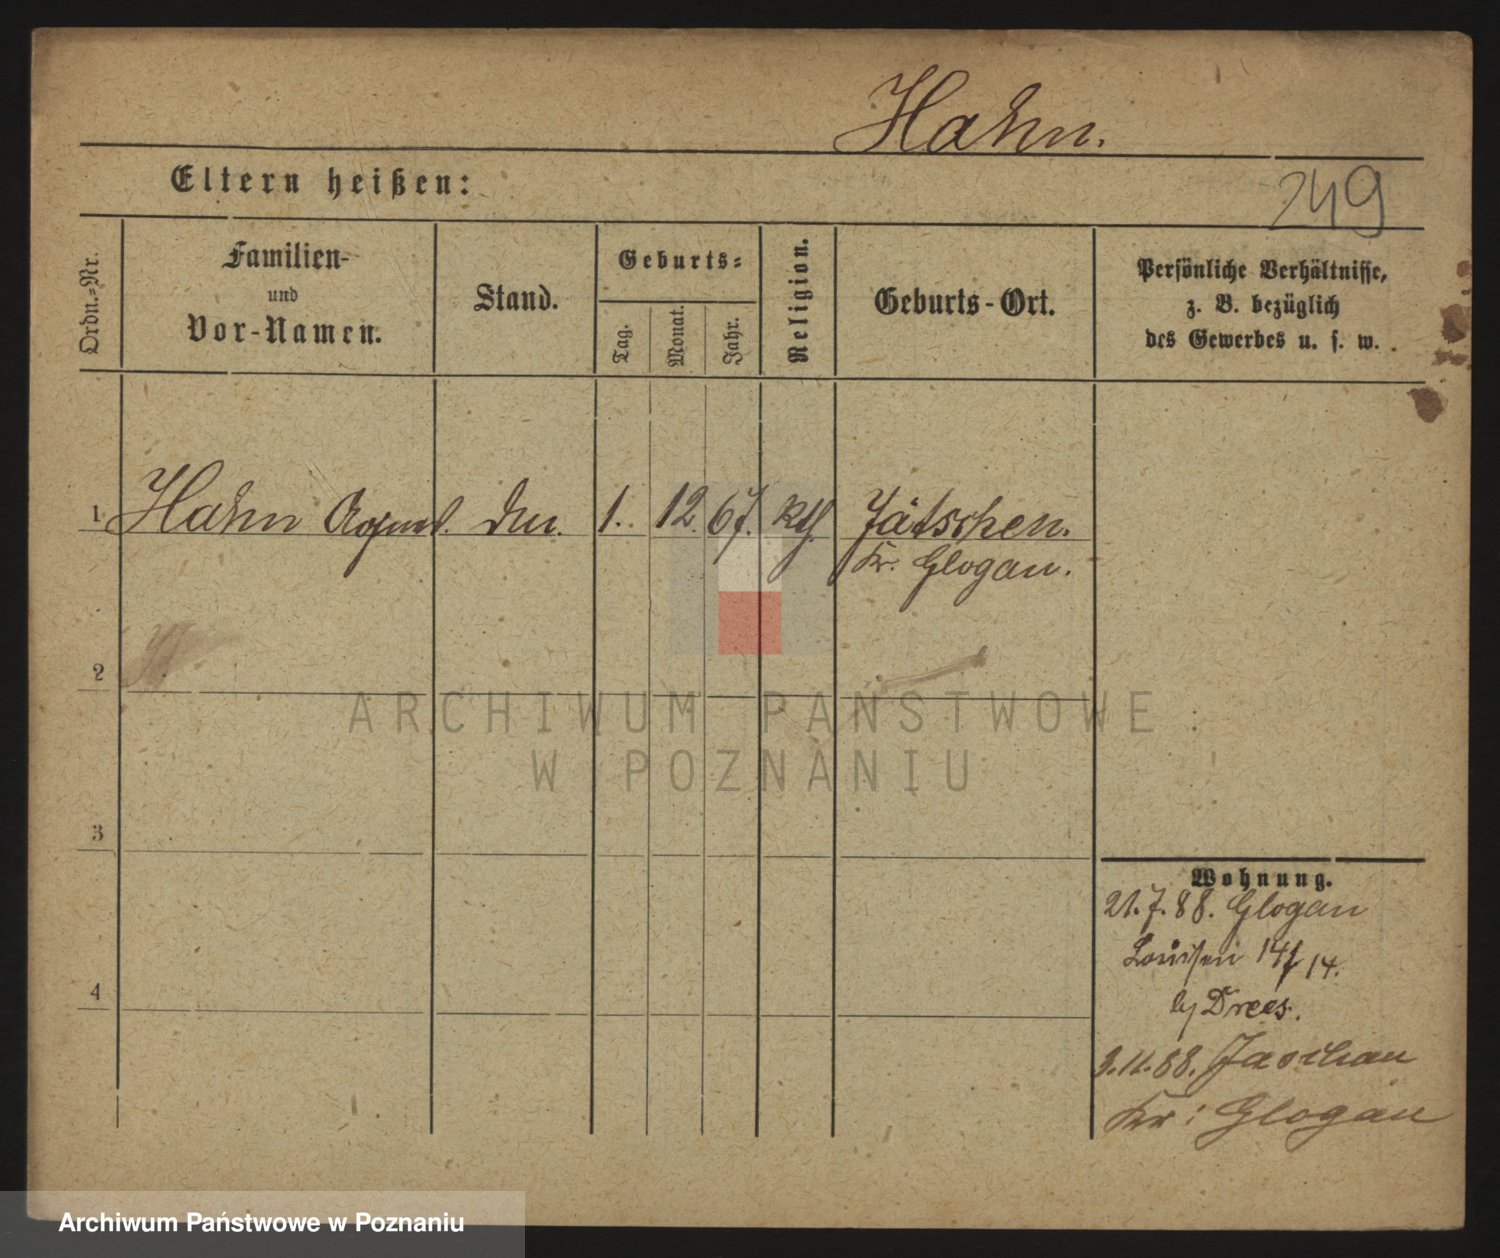 Hahn.
Eltern heißen:
249
Ordn.-Nr.
Familien-
und
Vor-Namen.
Stand.
Geburts-
Tag.
Monat.
Jahr.
Religion.
Geburts-Ort.
Persönliche Verhältnisse,
z. B. bezüglich
des Gewerbes u. s. w.
1 Hahn 1. 12. 67. kth. Jätschen.
Kr. Glogau.
2
ARCHIWUM PAŃSTWOWE
W POZNANIU
3
Wohnung.
21.7.88. Glogau
Louisen 14.
4
by Drees.
3.11.88. Jaschau
Kr: Glogau
Archiwum Państwowe w Poznaniu